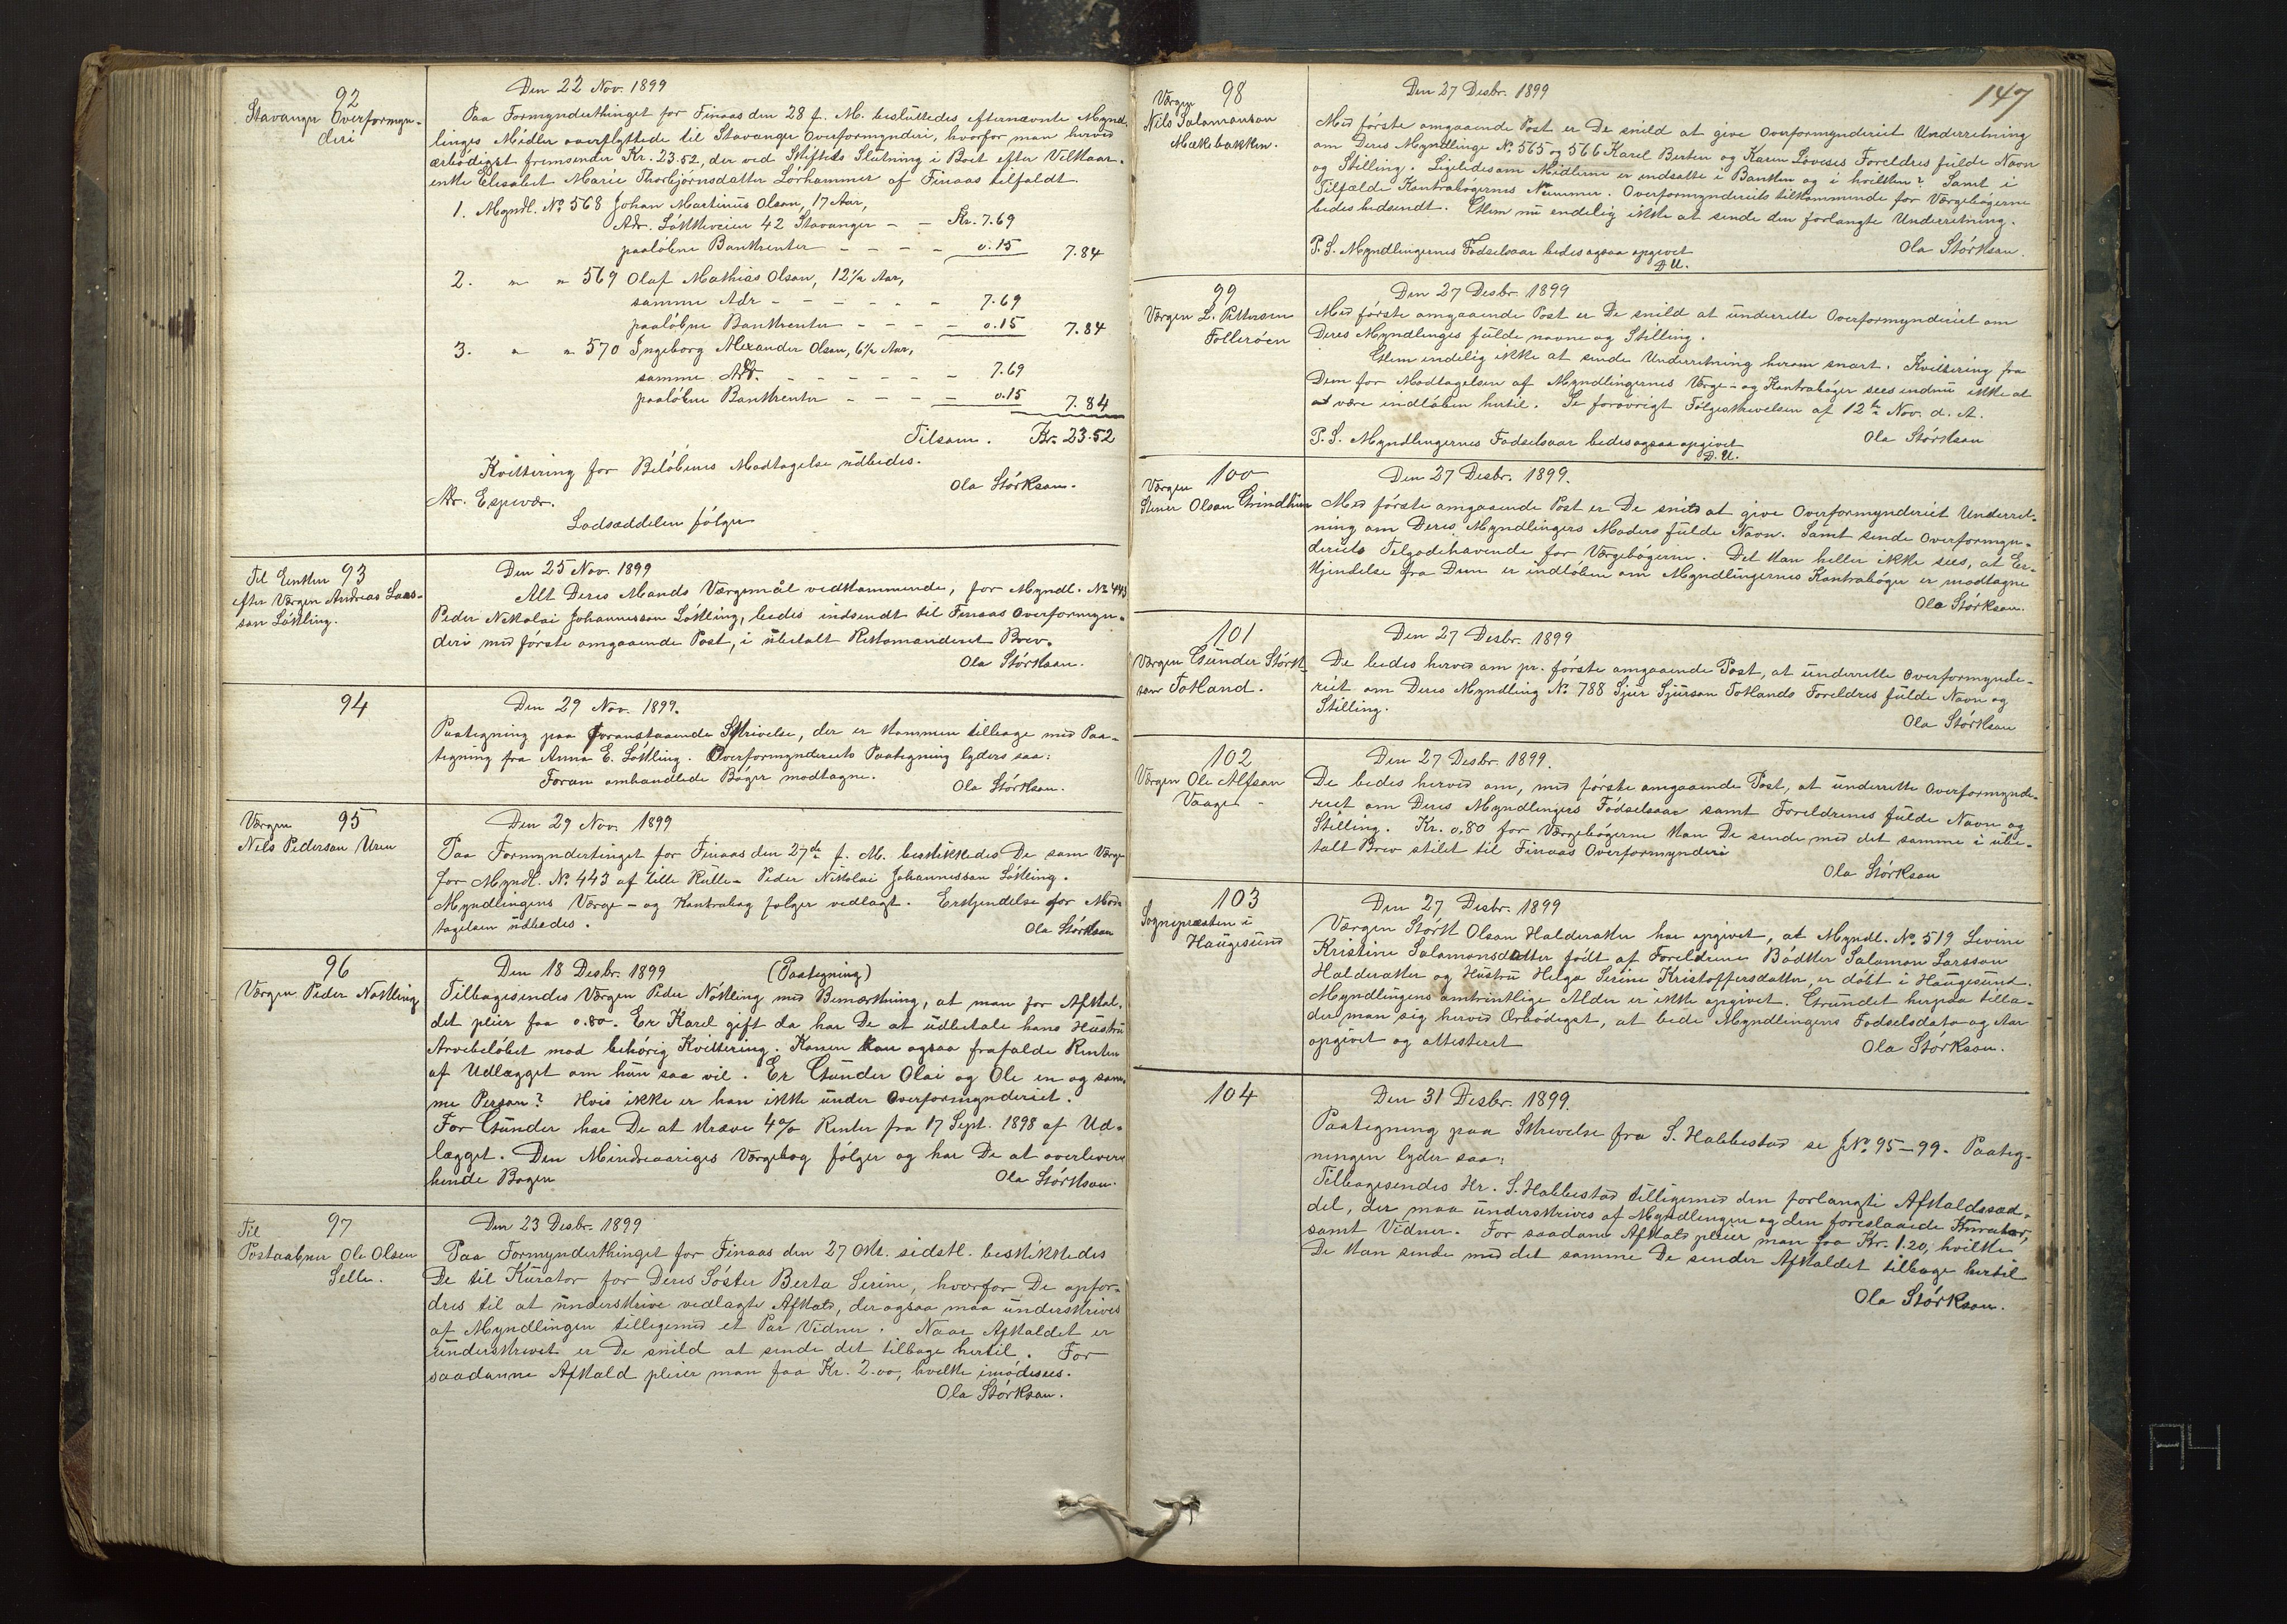 92
Stavanger Overformyn-
deri
Den 22 Nov. 1899
Paa Formynderthinget for Finaas den 28 f. M. besluttedes efternævnte Mynd-
linges Midler overflyttede til Stavanger Overformynderi, hvorfor man herved
ærbödigst fremsender Kr. 23.52, der ved Skiftets Slutning i Boet efter Vilkaar-
enke Elisabet Marie Thorbjörnsdatter Lörhammer af Finaas tilfaldt
1. Myndl. No 568 Johan Martinus Olson, 17 Aar,
Adr. Lökkeveien 42 Stavanger - - Kr. 7.69
paalöbne Bankrenter - - - - 0.15 7.84
2. " " 569 Olaf Mathias Olson, 12½ Aar,
samme Adr - - - - - - 7.69
paalöbne Bankrenter - - - - 0.15 7.84
3. " " 570 Ingeborg Alexander Olson, 6½ Aar,
samme Adr. - - - - - - 7.69
paalöbne Bankrenter - - - - 0.15 7.84
Tilsam. Kr. 23.52
Kvittering for Belöbenes Modtagelse udbedes.
Ola Störkson.
Adr. Espevær.
Lodseddelen fölger
Til Enken 93
efter Værgen Andreas Lars-
son Lökling.
Den 25 Nov. 1899
Alt Deres Mands Værgemål vedkommende, for Myndl. No 443
Peder Nikolai Johannesson Lökling, bedes indsendt til Finaas Overformyn-
deri med förste omgaaende Post, i übetalt Rekomanderet Brev.
Ola Störkson.
94
Den 29 Nov. 1899.
Paategning paa foranstaaende Skrivelse, der er kommen tilbage med Paa-
tegning fra Anna E. Lökling. Overformynderiets Paategning lyders saa:
Foran omhandlede Böger modtagne.
Ola Störkson.
Værgen 95
Nils Pederson Uren
Den 29 Nov. 1899
Paa Formyndertinget for Finaas den 27de f. M. beskikkedes De som Værge
for Myndl. No. 443 af lille Rulle - Peder Nikolai Johannesson Lökling.
Myndlingens Værge- og Kontrabog fölger vedlagt. Erkjendelse for Mod-
tagelsen udbedes.
Ola Störkson
96
Værgen Peder Nökling
Den 18 Desbr. 1899 (Paategning)
Tilbagesendes Værgen Peder Nökling med Bemærkning, at man for Afkal-
det pleier faa 0.80. Er Karel gift da har De at udbetale hans Hustru
Arvebelöbet mod behörig Kvittering. Konen kan ogsaa frafalde Renten
af Udlægget om hun saa vil. Er Gunder Olai og Ole en og sam-
me Person? Hvis ikke er han ikke under Overformynderiet.
For Gunder har De at kræve 4% Renter fra 17 Sept. 1898 af Ud-
lægget. Den Mindreaariges Værgebog fölger og har De at overlevere
hende Bogen
Ola Störkson.
Til 97
Postaabner Ole Olsen
Selle.
Den 23 Desbr. 1899
Paa Formynderthinget for Finaas den 27 Okt. sidstl. beskikkedes
De til Kurator for Deres Söster Berta Serine, hvorfor De opfor-
dres til at underskrive vedlagte Afkald, der ogsaa maa underskrives
af Myndlingen tilligemed et Par Vidner. Naar Afkaldet er
underskrevet er De snild at sende det tilbage hertil. For
saadanne Afkald pleier man faa Kr. 2.00, hvilke imödesees.
Ola Störkson.
147
Værgen 98
Nils Salamonson
Mækbakken.
Den 27 Desbr. 1899
Med förste omgaaende Post er De snild at give Overformynderiet Underretning
om Deres Myndlinge No. 565 og 566 Karel Berten og Karen Loveses Foreldres fulde Navn
og Stilling. Ligeledes om Midlerne er indsatte i Banken og i hvilken? Samt i
Tilfælde Kontrabogernes Nummer. Overformynderiets tilkommende for Værgebögerne
bedes hedsendt. Glem nu endelig ikke at sende den forlangte Underretning.
Ola Störkson.
P.S. Myndlingernes Födselsaar bedes ogsaa opgivet
D. U.
99
Værgen L. Pettersen
Folleröen
Den 27 Desbr. 1899
Med förste omgaaende Post er De snild at underrette Overformynderiet om
Deres Myndlinges fulde navne og Stilling.
Glem endelig ikke at sende Underretning herom snart. Kvittering fra
Dem for Modtagelsen af Myndlingernes Værge- og Kontraböger sees endnu ikke at
at være indlöben hertil. Se forövrigt Fölgeskrivelsen af 12te Nov. d. A.
Ola Störkson
P.S. Myndlingernes Födselsaar bedes ogsaa opgivet
D. U.
Værgen 100
Steiner Olson Grindheim
Den 27 Desbr. 1899.
Med förste omgaaende Post er De snild at give Overformynderiet Underret-
ning om Deres Myndlingers Moders fulde Navn. Samt sende Overformyn-
deriets Tilgodehavende for Værgebögerne. Det kan heller ikke sees, at Er-
kjendelse fra Dem er indlöben om Myndlingernes Kontraböger er modtagne
Ola Störkson.
101
Værgen Gunder Störk-
son Totland.
Den 27 Desbr. 1899
De bedes herved om pr. förste omgaaende Post, at underrette Overformynde-
riet om Deres Myndling No. 788 Sjur Sjurson Totlands Foreldres fulde Navn og
Stilling.
Ola Störkson
102
Værgen Ole Alfson
Vaage -
Den 27 Desbr. 1899.
De bedes herved om, med förste omgaaende Post, at underrette Overformynde-
riet om Deres Myndlingers Födselsaar samt Foreldrenes fulde Navn og
Stilling. Kr. 0,80 for Værgebögerne kan De sende med det samme i übe-
talt Brev stilet til Finaas Overformynderi
Ola Störkson
103
Sognepræsten i
Haugesund
Den 27 Desbr. 1899
Værgen Störk Olson Halderaker har opgivet, at Myndl. No. 519 Sevine
Kristine Salamonsdatter födt af Foreldrene Bödker Salomon Larsson
Halderaker og Hustru Helga Serine Kristoffersdatter, er döbt i Haugesund.
Myndlingens omtrintlige Alder er ikke opgivet. Grundet herpaa tilla-
der man sig herved Ærbödigst, at bede Myndlingens Födselsdato og Aar
opgivet og attesteret
Ola Störkson.
104
Den 31 Desbr. 1899.
Paategning paa Skrivelse fra S. Habbestad se JNo. 95-99. Paateg-
ningen lyder saa:
Tilbagesendes Hr. S. Habbestad tilligemed den forlangte Afkaldssed-
del, der maa underskrives af Myndlingen og den foreslaaede Kurator,
samt Vidner. For saadane Afkald pleier man faa Kr. 1.20, hvilke
De kan sende med det samme De sender Afkaldet tilbage hertil
Ola Störkson.